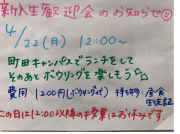 新入生歓迎会のお知らせ②
4/22(月) 12:00〜
町田キャンパスでランチをして
そのあとボウリングを楽しもう
費用:1200円(ボウリング代) 持ち物:昼食
この日は12:00以降の授業はお休みです。